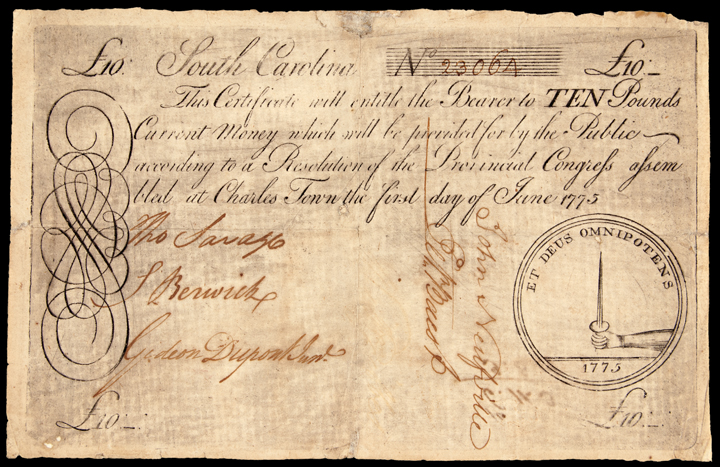 £10: South Carolina No 23064 £10:
This Certificate will entitle the Bearer to TEN Pounds
Current Money which will be provided for by the Public
according to a Resolution of the Provincial Congress assem
bled at Charles Town the first day of June 1775
Tho Savage
S Berwick
Gideon Dupont Junr.
John Neufville
ET DEUS OMNIPOTENS
1775
£10: £10: